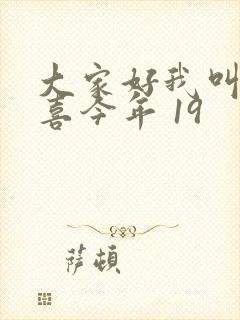 大家好我叫
喜今年19
萨顿